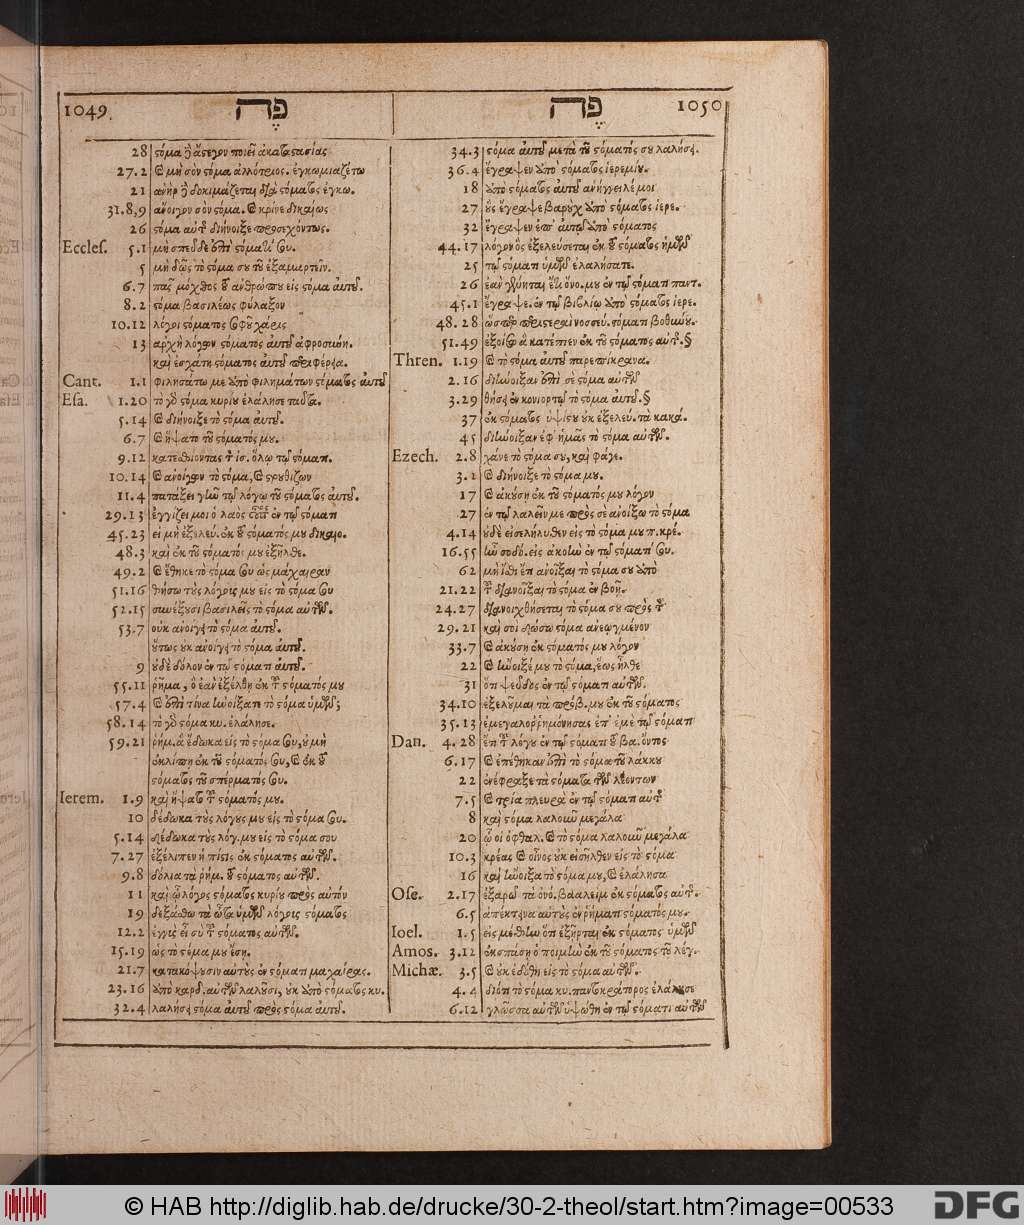 1049
פֶּה
28 στόμα ἢ ἄστεγον ποιεῖ ἀκαταστασίας
27.2 καὶ μὴ σὸν στόμα ἀλλότριος. ἐγκωμιαζέτω
21 ἀνὴρ ἢ δοκιμάζεται διὰ στόματος ἐγκω.
31.8,9 ἄνοιγον σὸν στόμα. καὶ κρίνε δικαίως
26 στόμα αὐτῆς διήνοιξε προσεχόντως.
Eccles. 5.1 μὴ σπεῦδε ἐπὶ στόματί σου.
5 μὴ δῷς τὸ στόμα σου τοῦ ἐξαμαρτεῖν.
6.7 πᾶς μόχθος τοῦ ἀνθρώπου εἰς στόμα αὐτοῦ.
8.2 στόμα βασιλέως φύλαξον
10.12 λόγοι στόματος σοφοῦ χάρις
13 ἀρχὴ λόγων στόματος αὐτοῦ ἀφροσύνη.
καὶ ἐσχάτη στόματος αὐτοῦ περιφέρεια.
Cant. 1.1 φιλησάτω με ὑπὸ φιλημάτων στόματος αὐτοῦ
Esa. 1.20 τὸ γὰρ στόμα κυρίου ἐλάλησε ταῦτα.
5.14 καὶ διήνοιξε τὸ στόμα αὐτοῦ.
6.7 καὶ ἥψατο τοῦ στόματός μου.
9.12 κατεσθίοντας τ ἰσ. ὅλῳ τῷ στόματι.
10.14 καὶ ἀνοίγων τὸ στόμα, καὶ στρουθίζων
11.4 πατάξει γῆν τῷ λόγῳ τοῦ στόματος αὐτοῦ.
29.13 ἐγγίζει μοι ὁ λαὸς οὗτος ἐν τῷ στόματι
45.23 εἰ μὴ ἐξελεύ. ἐκ τοῦ στόματός μου δικαιο.
48.3 καὶ ἐκ τοῦ στόματός μου ἐξῆλθε.
49.2 καὶ ἔθηκε τὸ στόμα σου ὡς μάχαιραν
51.16 θήσω τοὺς λόγους μου εἰς τὸ στόμα σου
52.15 συνέξουσι βασιλεῖς τὸ στόμα αὐτῶν.
53.7 οὐκ ἀνοίγει τὸ στόμα αὐτοῦ.
οὕτως οὐκ ἀνοίγει τὸ στόμα αὐτοῦ.
9 οὐδὲ δόλον ἐν τῷ στόματι αὐτοῦ.
55.11 ῥῆμα, ὃ ἐὰν ἐξέλθῃ ἐκ τοῦ στόματός μου
57.4 καὶ ἐπὶ τίνα ἠνοίξατε τὸ στόμα ὑμῶν;
58.14 τὸ γὰρ στόμα κυ. ἐλάλησε.
59.21 ῥήμ. ἃ ἔδωκα εἰς τὸ στόμα σου, οὐ μὴ
ἐκλίπῃ ἐκ τοῦ στόματός σου, καὶ ἐκ τοῦ
στόματος τοῦ σπέρματός σου.
Ierem. 1.9 καὶ ἥψατο τοῦ στόματός μου.
10 δέδωκα τοὺς λόγους μου εἰς τὸ στόμα σου.
5.14 δέδωκα τοὺς λόγ. μου εἰς τὸ στόμα σου
7.27 ἐξέλιπεν ἡ πίστις ἐκ στόματος αὐτῶν.
9.8 δόλια τὰ ῥήμ. τοῦ στόματος αὐτῶν.
11 καὶ ᾧ λόγος στόματος κυρίου πρὸς αὐτόν
19 δεξάσθω τὰ ὦτα ὑμῶν λόγους στόματος
12.2 ἐγγὺς εἶ σὺ τοῦ στόματος αὐτῶν.
15.19 ὡς τὸ στόμα μου ἔσῃ.
21.7 κατακόψουσιν αὐτοὺς ἐν στόματι μαχαίρας.
23.16 ἀπὸ καρδ. αὐτῶν λαλοῦσι, οὐκ ἀπὸ στόματος κυ.
32.4 λαλήσει στόμα αὐτοῦ πρὸς στόμα αὐτοῦ.
פֶּה
1050
34.3 στόμα αὐτοῦ μετὰ τοῦ στόματός σου λαλήσει.
36.4 ἔγραψεν ἀπὸ στόματος ἱερεμίου.
18 ἀπὸ στόματος αὐτοῦ ἀνήγγειλέ μοι
27 οὓς ἔγραψε βαροὺχ ἀπὸ στόματος ἱερε.
32 ἔγραψεν ἐπ' αὐτῷ ἀπὸ στόματος
44.17 λόγον ὃς ἐξελεύσεται ἐκ τοῦ στόματος ἡμῶν
25 τῷ στόματι ὑμῶν ἐλαλήσατε.
26 ἐὰν γένηται ἔτι ὄνο. μου ἐν τῷ στόματι παντ.
45.1 ἔγραψε. ἐν τῷ βιβλίῳ ἀπὸ στόματος ἱερε.
48.28 ὥσπερ περιστεραὶ νοσσεύ. στόματι βοθύνου.
51.49 ἐξοίσω ἃ κατέπιεν ἐκ τοῦ στόματος αὐτῆς. §
Thren. 1.19 καὶ τὸ στόμα αὐτοῦ παρεπίκρανα.
2.16 διήνοιξαν ἐπὶ σὲ στόμα αὐτῶν
3.29 θήσει ἐν κονιορτῷ τὸ στόμα αὐτοῦ. §
37 ἐκ στόματος ὑψίστου οὐκ ἐξελεύ. τὰ κακά.
45 διήνοιξαν ἐφ' ἡμᾶς τὸ στόμα αὐτῶν.
Ezech. 2.8 χάνε τὸ στόμα σου, καὶ φάγε.
3.1 καὶ διήνοιξε τὸ στόμα μου.
17 καὶ ἀκούσῃ ἐκ τοῦ στόματός μου λόγον
27 ἐν τῷ λαλεῖν με πρὸς σὲ ἀνοίξω τὸ στόμα
4.14 οὐδὲ εἰσελήλυθεν εἰς τὸ στόμα μου π. κρέ.
16.55 ἦν σοδό. εἰς ἀκοὴν ἐν τῷ στόματί σου.
62 μὴ ᾖ ἔτι ἀνοῖξαι τὸ στόμα σου ἀπὸ
21.22 τοῦ διανοῖξαι τὸ στόμα ἐν βοῇ.
24.27 διανοιχθήσεται τὸ στόμα σου πρὸς τ
29.21 καὶ σοὶ δώσω στόμα ἀνεῳγμένον
33.7 καὶ ἀκούσῃ ἐκ στόματός μου λόγον
22 καὶ ἤνοιξέ μου τὸ στόμα, ἕως ἦλθε
31 ὅτι ψεῦδος ἐν τῷ στόματι αὐτῶν.
34.10 ἐξελοῦμαι τὰ πρόβ. μου ἐκ τοῦ στόματος
35.13 ἐμεγαλορρημόνησας ἐπ' ἐμὲ τῷ στόματι
Dan. 4.28 ἔτι τοῦ λόγου ἐν τῷ στόματι τοῦ βα. ὄντος
6.17 καὶ ἐπέθηκαν ἐπὶ τὸ στόμα τοῦ λάκκου
22 ἐνέφραξε τὰ στόματα τῶν λεόντων
7.5 καὶ τρία πλευρὰ ἐν τῷ στόματι αὐτῆς
8 καὶ στόμα λαλοῦν μεγάλα
20 ᾧ οἱ ὀφθαλ. καὶ τὸ στόμα λαλοῦν μεγάλα
10.3 κρέας καὶ οἶνος οὐκ εἰσῆλθεν εἰς τὸ στόμα
16 καὶ ἤνοιξα τὸ στόμα μου, καὶ ἐλάλησα
Ose. 2.17 ἐξαρῶ τὰ ὀνό. βααλεὶμ ἐκ στόματος αὐτῆς.
6.5 ἀπέκτεινα αὐτοὺς ἐν ῥήματι στόματός μου.
Ioel. 1.5 εἰς μέθην ὅτι ἐξῆρται ἐκ στόματος ὑμῶν
Amos. 3.12 ἐκσπάσῃ ὁ ποιμὴν ἐκ τοῦ στόματος τοῦ λέγ.
Michæ. 3.5 καὶ οὐκ ἐδόθη εἰς τὸ στόμα αὐτῶν.
4.4 διότι τὸ στόμα κυ. παντοκράτορος ἐλάλησε
6.12 γλῶσσα αὐτῶν ὑψώθη ἐν τῷ στόματι αὐτῶν
© HAB http://diglib.hab.de/drucke/30-2-theol/start.htm?image=00533
DFG